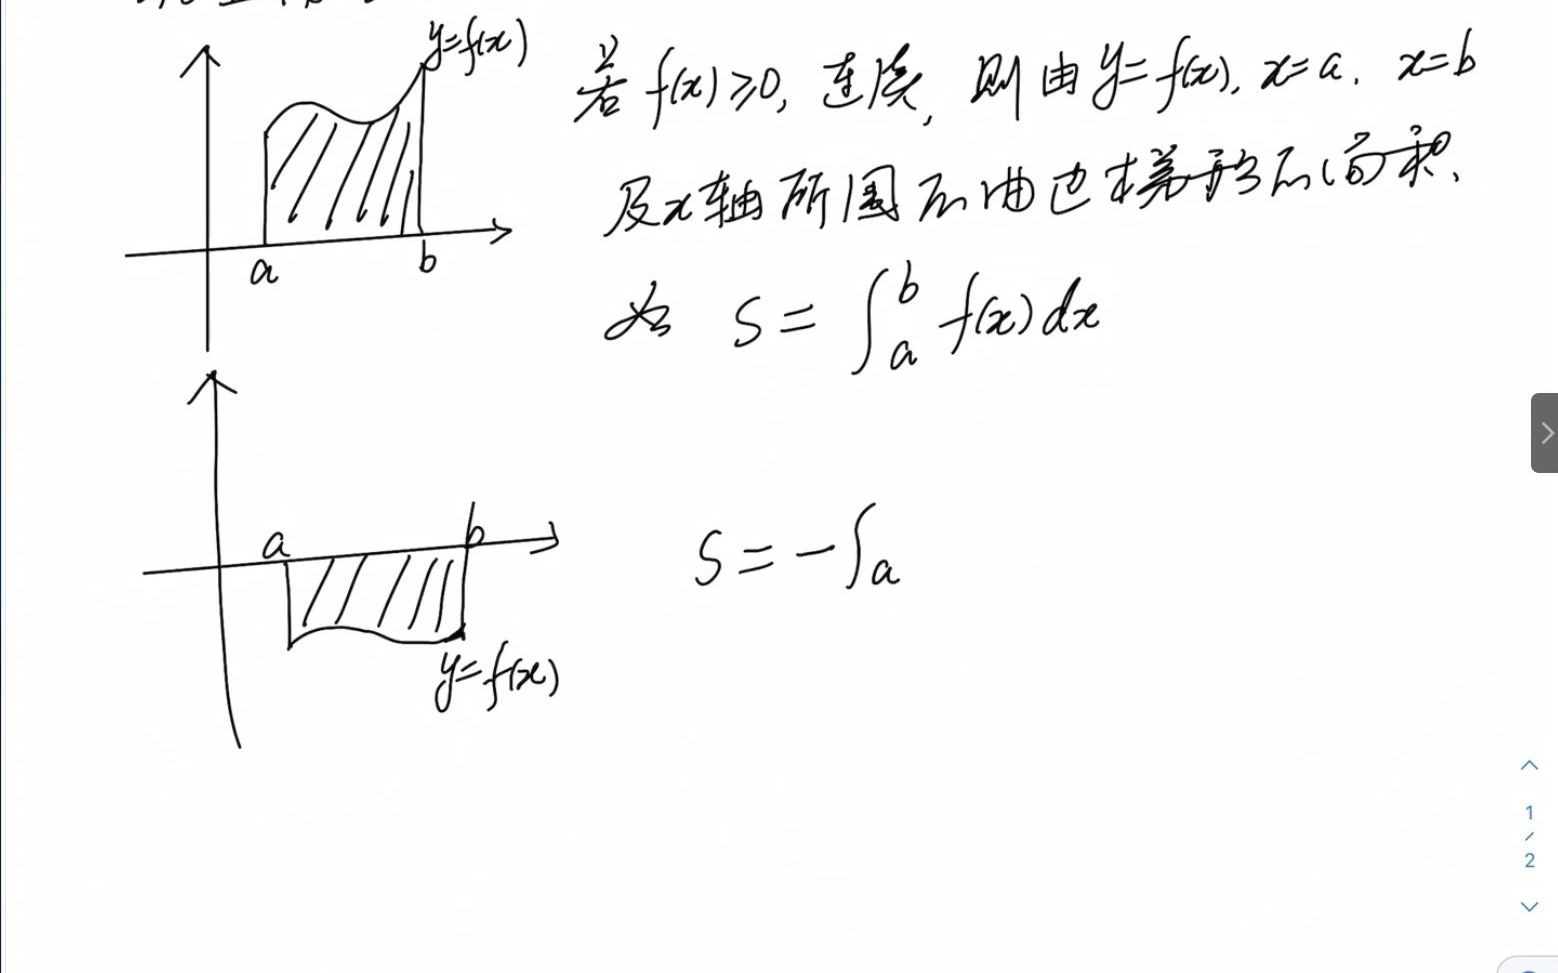 y=f(x)
若 f(x)≥0, 连续, 则由 y=f(x), x=a, x=b
及x轴所围的曲边梯形的面积,
为 S=∫_a^b f(x)dx
a
b
a
b
S=-∫_a
y=f(x)
1
/
2